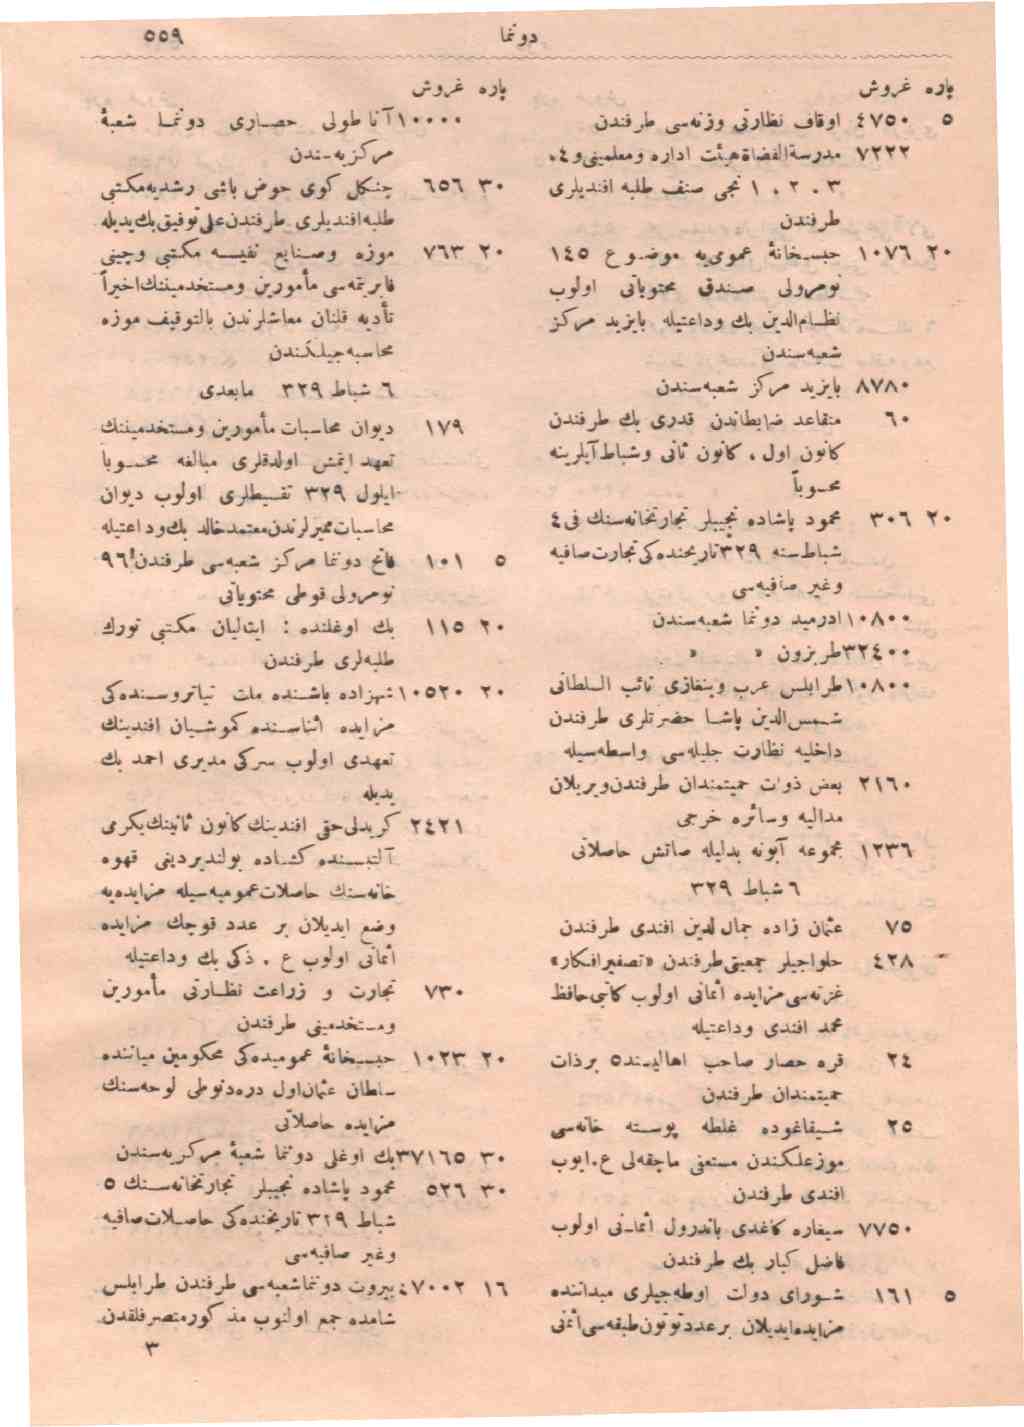 دوتما
٥٥٩
پاره غروش
٥ ٤٧٥٠ اوقاف نظارتی وزنه‌سی طرفندن
٧٢٢٢ مدرسةالقضاة هیئت اداره ومعلمینی و٤،
٣ ، ٢ ، ١ نجی صنف طلبه افندیلری
طرفندن
٢٠ ١٠٧٦ حبسخانهٔ عمومی‌یه موضوع ١٤٥
نومرولی صندق محتویاتی اولوب
نظام‌الدین بك وداعتیله بایزید مركز
شعبه‌سندن
٨٧٨٠ بایزید مركز شعبه‌سندن
٦٠ متقاعد ضابطاندن قدری بك طرفندن
كانون اول ، كانون ثانی وشباط آیلرینه
محسوباً
٢٠ ٣٠٦ محمود پاشاده نجیبلر تجارتخانه‌سنك فی ٤
شباط سنه ٣٢٩ تاریخنده‌كی تجارت صافیه
وغیر صافیه‌سی
١٠٨٠٠ ادرمید دوتما شعبه‌سندن
٣٢٤٠٠ طربزون » »
١٠٨٠٠ طرابلس غرب وبنغازی نائب السلطانی
شمس‌الدین پاشا حضرتلری طرفندن
داخلیه نظارت جلیله‌سی واسطه‌سیله
٢١٦٠ بعض ذوات حمیتمندان طرفندن ویریلان
مدالیه وسائره خرجی
١٢٣٦ مجموعه آبونه بدلیله صاتش حاصلاتی
٦ شباط ٣٢٩
٧٥ عثمان زاده جمال‌الدین افندی طرفندن
٤٢٨ حلواجیلر جمعیتی طرفندن «تصفیرافكار»
غزته‌سی مزایده اثمانی اولوب كاتبی حافظ
محمد افندی وداعتیله
٢٤ قره حصار صاحب اهالیسندن ٥ بر ذات
حمیتمندان طرفندن
٢٥ شیقاغوده غلطه پوسته خانه‌سی
موزعلكندن مستعفی ماچقه‌لی ع.ایوب
افندی طرفندن
٧٧٥٠ سیغاره كاغدی باندرول اثمانی اولوب
فاضل كبار بك طرفندن
٥ ١٦١ شورای دولت اوطه‌جیلری میداننده
مزایده ایدیلان بر عدد توتون طبقه‌سی اثمنی
پاره غروش
١٠٠٠٠ آناطولی حصاری دوتما شعبهٔ
مركزیه‌سندن
٣٠ ٦٥٦ چنكل كوی حوض باشی رشدیه مكتبی
طلبه افندیلری طرفندن علی توفیق بك یدیله
٢٠ ٧٦٣ موزه وصنایع نفیسه مكتبی وچینی
فابریقه‌سی مأمورین ومستخدمیننك اخیراً
تأدیه قلنان معاشلرندن بالتوقیف موزه
محاسبه‌جیلكندن
٦ شباط ٣٢٩ مابعدی
١٧٩ دیوان محاسبات مأمورین ومستخدمیننك
تعهد ایتمش اولدقلری مبالغه محسوباً
ایلول ٣٢٩ تقسیطلری اولوب دیوان
محاسبات ممیزلرندن معتمد خالد بك وداعتیله
٥ ١٠١ فاتح دوتما مركز شعبه‌سی طرفندن ٩٦
نومرولی قوطی محتویاتی
٢٠ ١١٥ بك اوغلنده : ایتالیان مكتبی تورك
طلبه‌لری طرفندن
٢٠ ١٠٥٢٠ شهزاده باشنده ملت تیاتروسنده‌كی
مزایده اثناسنده كموشیان افندینك
تعهدی اولوب سركی مدیری احمد بك
یدیله
٢٤٢١ كریدلی حقی افندینك كانون ثانینك یكرمی
آلتیسنده كشاده بولندیردیغی قهوه
خانه‌سنك حاصلات عمومیه‌سیله مزایده‌یه
وضع ایدیلان بر عدد قوچك مزایده
اثمانی اولوب ع . ذكی بك وداعتیله
٧٣٠ تجارت و زراعت نظارتی مأمورین
ومستخدمینی طرفندن
٢٠ ١٠٢٣ حبسخانهٔ عمومیده‌كی محكومین میاننده
سلطان عثمان اول دره‌دنوطی لوحه‌سنك
مزایده حاصلاتی
٣٠ ٣٧١٦٥ بك اوغلی دوتما شعبهٔ مركزیه‌سندن
٣٠ ٥٢٦ محمود پاشاده نجیبلر تجارتخانه‌سنك ٥
شباط ٣٢٩ تاریخنده‌كی حاصلات صافیه
وغیر صافیه‌سی
١٦ ٤٧٠٠٢ بیروت دوتما شعبه‌سی طرفندن طرابلس
شامده جمع اولنوب مذكور متصرفلقدن
٣